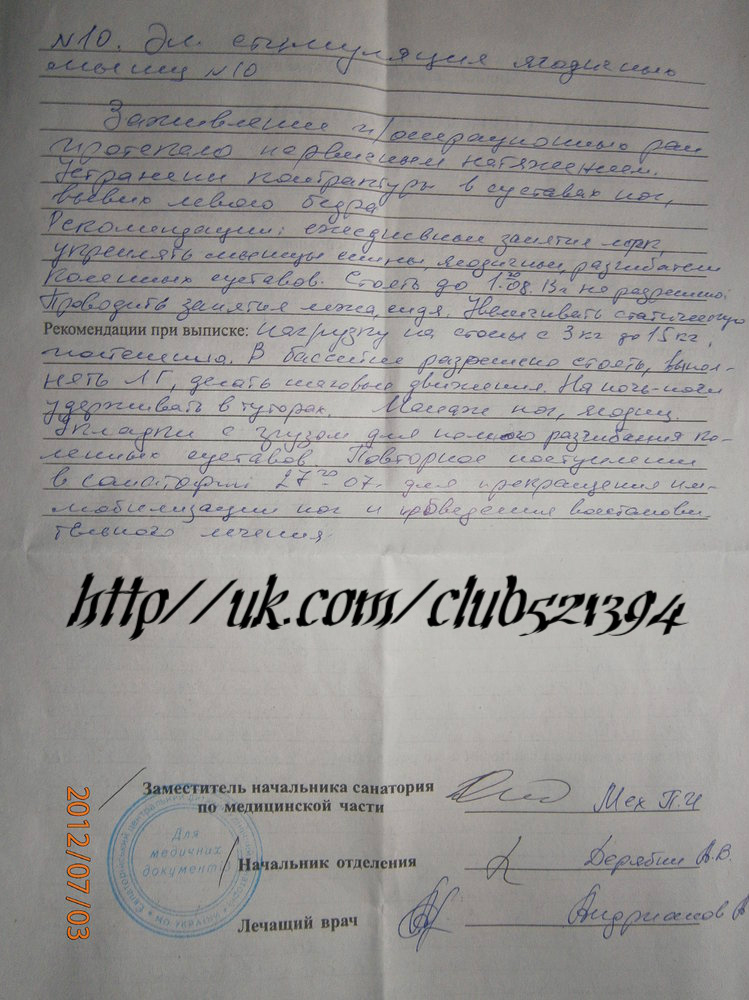 N10. Эл. стимуляция ягодичных
мышц N10
Заживление п/операционных ран
протекало первичным натяжением.
Устранены контрактуры в суставах ног,
вывих левого бедра
Рекомендации: ежедневные занятия
укреплять мышцы спины, ягодичные, разгибатели
коленных суставов. Стоять до 1.08. не разрешено.
Проводить занятия лежа, сидя. Увеличивать статическую
Рекомендации при выписке: нагрузку на стопы с 3 кг до 15 кг,
постепенно. В бассейне разрешено стоять, выпол-
нять ЛГ, делать шаговые движения. На ночь-ноги
удерживать в туторах. Массаж ног, ягодиц.
Укладки с грузом для полного разгибания ко-
ленных суставов. Повторное поступление
в санаторий 27го 07. для прекращения им-
мобилизации ног и проведения восстанови-
тельного лечения.
http//uk.com/club521394
Заместитель начальника санатория
по медицинской части
Мех П.И
Для
медичних
документів
Начальник отделения
Дерябин А.В.
Лечащий врач
Андрианов А
2012/07/03